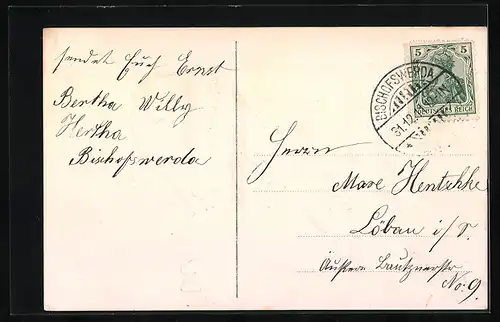 sendet Euch Ernst
Bertha Willy
Hertha
Bischofswerda
5 5
BISCHOFSWERDA
31.12.
DEUTSCHES REICH
Herrn
Max Hentschke
Löbau i/S.
Äussere Bautznerstr
No: 9.